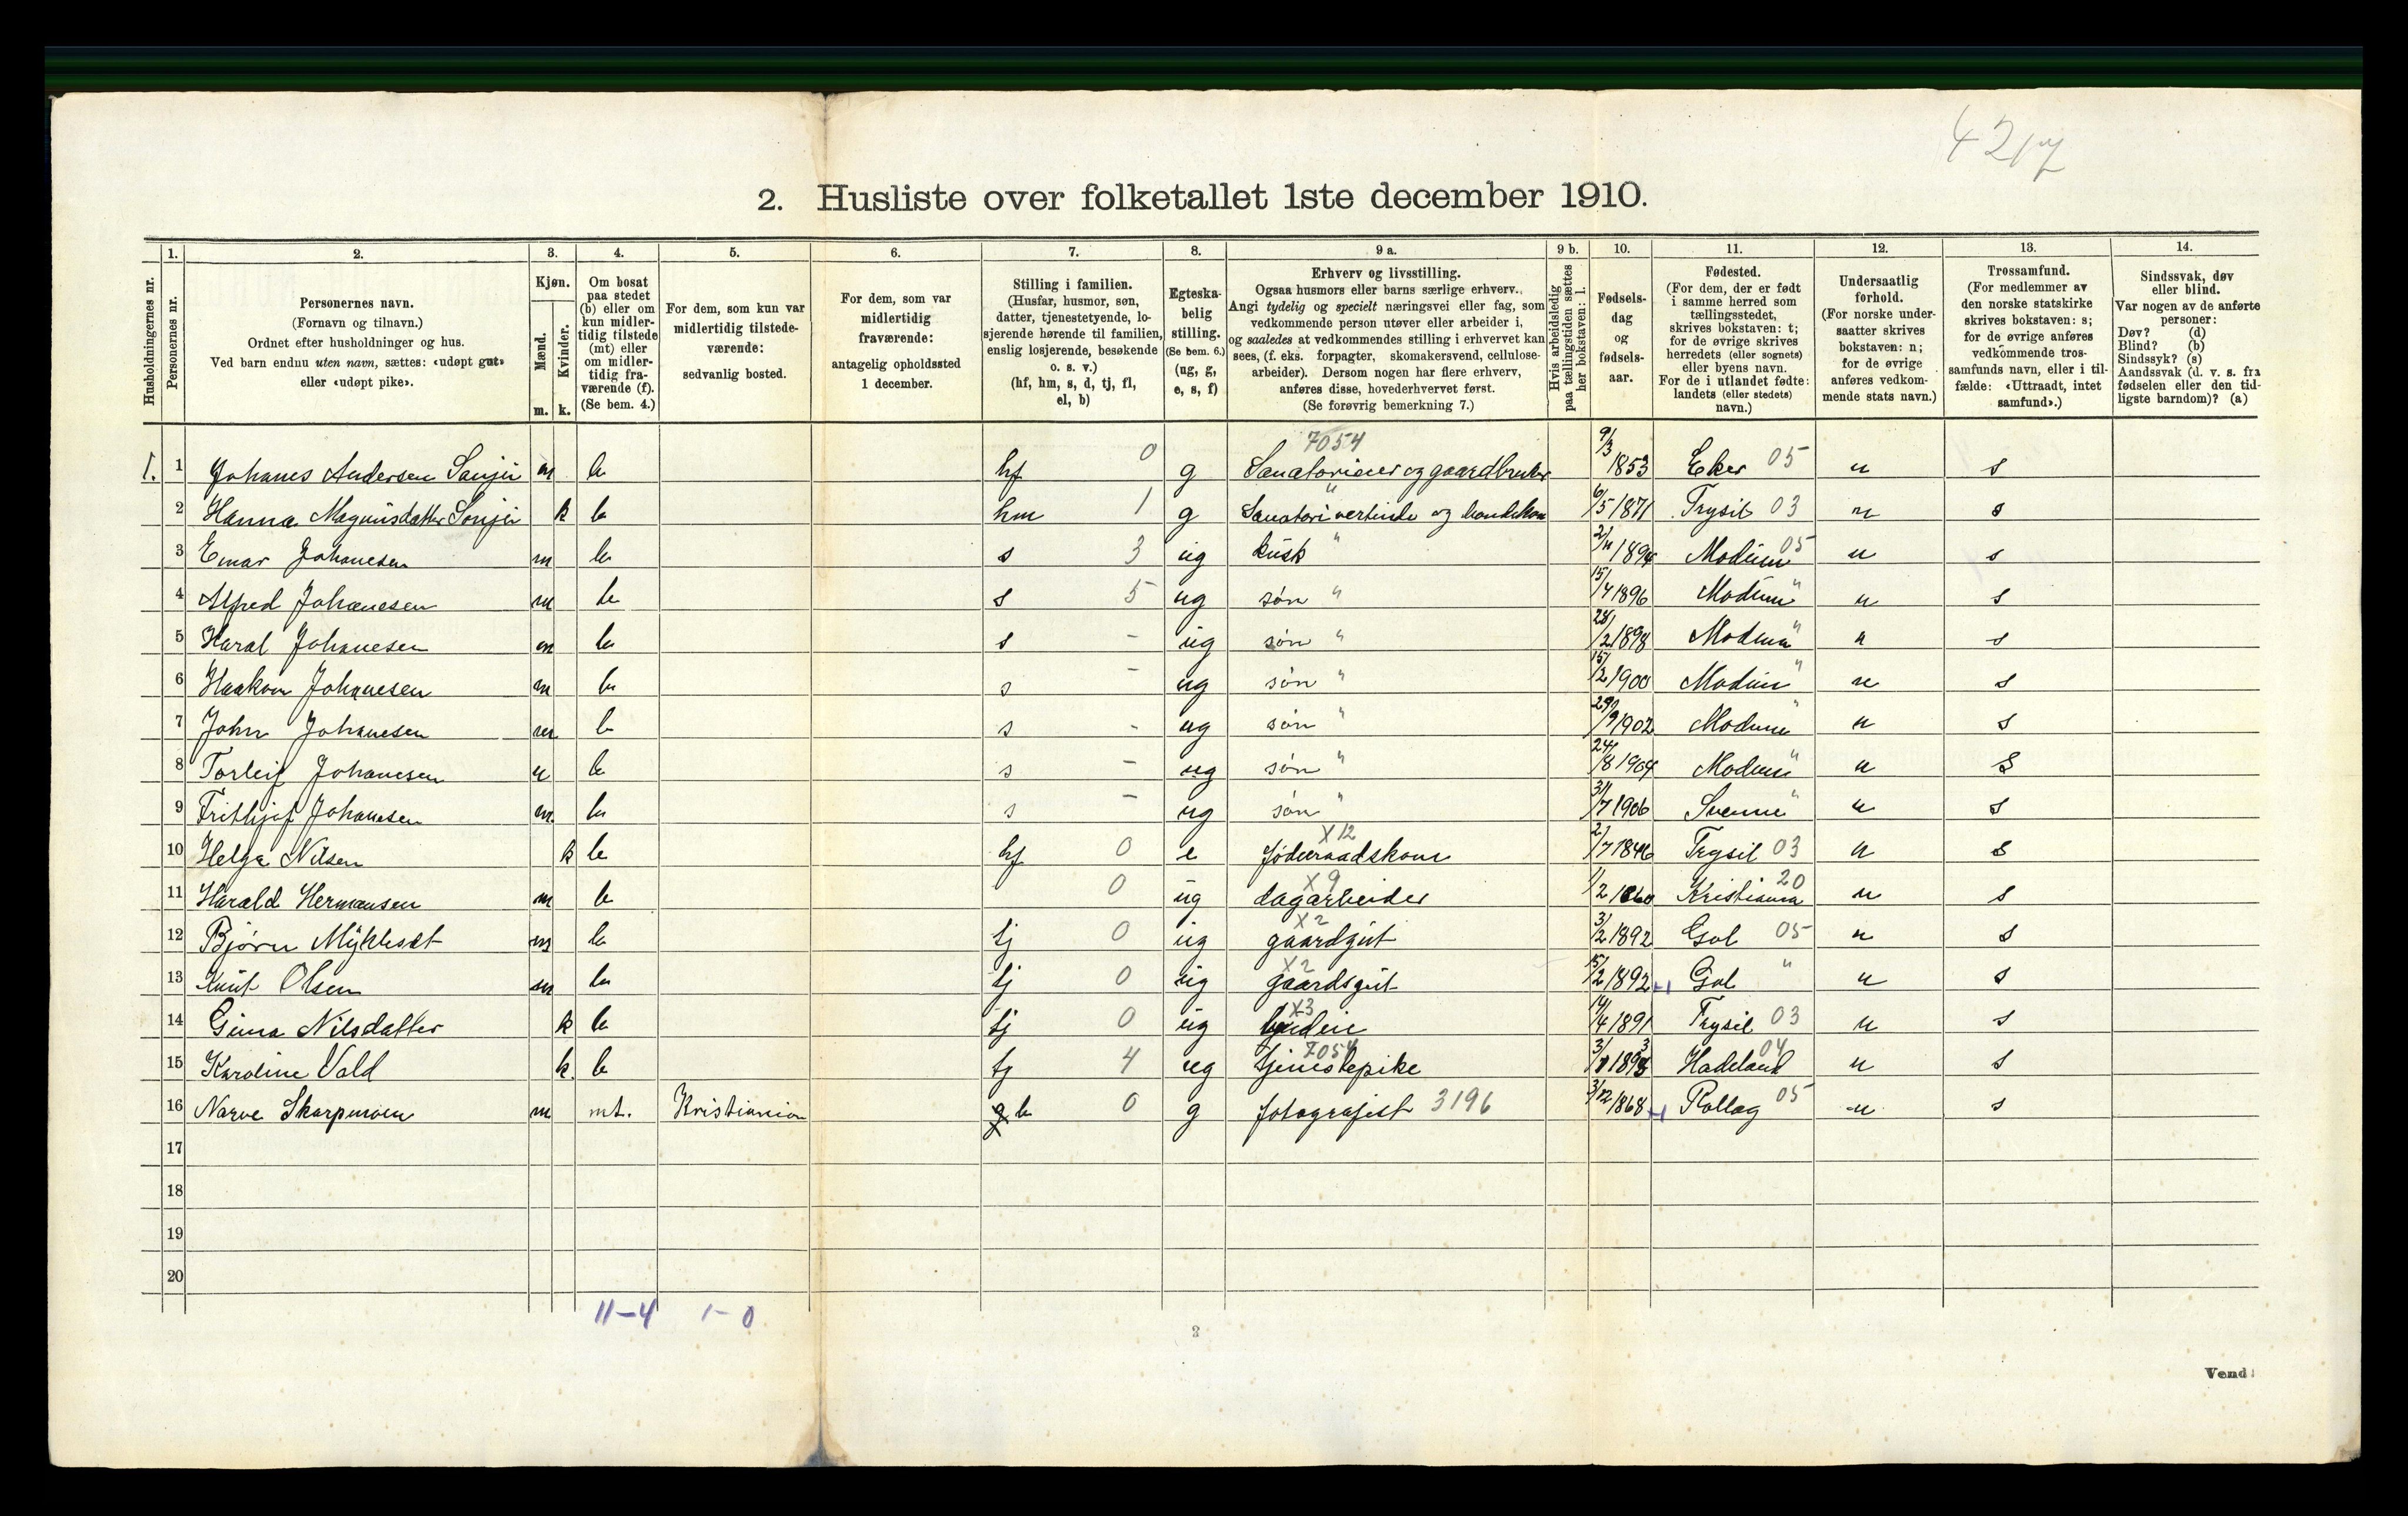 42
2. Husliste over folketallet 1ste december 1910.
1. 2. 3. 4. 5. 6. 7. 8. 9 a. 9 b. 10. 11. 12. 13. 14.
Husholdningernes nr.
Personernes nr.
Personernes navn.
(Fornavn og tilnavn.)
Ordnet efter husholdninger og hus.
Ved barn endnu uten navn, sættes: «udøpt gut»
eller «udøpt pike».
Kjøn.
Mænd.
Kvinder.
m. k.
Om bosat
paa stedet
(b) eller om
kun midler-
tidig tilstede
(mt) eller
om midler-
tidig fra-
værende (f).
(Se bem. 4.)
For dem, som kun var
midlertidig tilstede-
værende:
sedvanlig bosted.
For dem, som var
midlertidig
fraværende:
antagelig opholdssted
1 december.
Stilling i familien.
(Husfar, husmor, søn,
datter, tjenestetyende, lo-
sjerende hørende til familien,
enslig losjerende, besøkende
o. s. v.)
(hf, hm, s, d, tj, fl,
el, b)
Egteska-
belig
stilling.
(Se bem. 6.)
(ug, g,
e, s, f)
Erhverv og livsstilling.
Ogsaa husmors eller barns særlige erhverv.
Angi tydelig og specielt næringsvei eller fag, som
vedkommende person utøver eller arbeider i,
og saaledes at vedkommendes stilling i erhvervet kan
sees, (f. eks. forpagter, skomakersvend, cellulose-
arbeider). Dersom nogen har flere erhverv,
anføres disse, hovederhvervet først.
(Se forøvrig bemerkning 7.)
Hvis arbeidsledig
paa tællingstiden sættes
her bokstaven: l.
Fødsels-
dag
og
fødsels-
aar.
Fødested.
(For dem, der er født
i samme herred som
tællingsstedet,
skrives bokstaven: t;
for de øvrige skrives
herredets (eller sognets)
eller byens navn.
For de i utlandet fødte:
landets (eller stedets)
navn.)
Undersaatlig
forhold.
(For norske under-
saatter skrives
bokstaven: n;
for de øvrige
anføres vedkom-
mende stats navn.)
Trossamfund.
(For medlemmer av
den norske statskirke
skrives bokstaven: s;
for de øvrige anføres
vedkommende tros-
samfunds navn, eller i til-
fælde: «Uttraadt, intet
samfund».)
Sindssvak, døv
eller blind.
Var nogen av de anførte
personer:
Døv? (d)
Blind? (b)
Sindssyk? (s)
Aandssvak (d. v. s. fra
fødselen eller den tid-
ligste barndom)? (a)
7054
1. 1 Johanes Andersen m b hf 0 g Sanatorieier og gaardbruker 9/3 1853 Eker 05 n s
2 Hanna Magnusdatter k b hm 1 g Sanatorivertinde og 6/5 1871 Trysil 03 n s
3 Einar Johanesen m b s 3 ug kusk " 2/11 1894 Modum 05 n s
4 Alfred Johanesen m b s 5 ug søn " 15/4 1896 Modum " n s
5 Haral Johanesen m b s - ug søn " 28/2 1898 Modum " n s
6 Haakon Johanesen m b s - ug søn " 15/2 1900 Modum " n s
7 John Johanesen m b s - ug søn " 29/9 1902 Modum " n s
8 Torleif Johanesen m b s - ug søn " 24/8 1904 Modum " n s
9 Frithjof Johanesen m b s - ug søn " 31/7 1906 Svenne " n s
10 Helga Nilsen k b hf 0 e føderaadskone X12 2/7 1846 Trysil 03 n s
11 Harald Hermansen m b 0 ug dagarbeider X9 1/2 1860 Kristiania 20 n s
12 Bjørn Mykleset m b tj 0 ug gaardgut X2 3/2 1892 Gol 05 n s
13 Knut Olsen m b tj 0 ug gaardsgut X2 15/2 1892 Gol " n s
14 Gina Nilsdatter k b tj 0 ug budeie X3 14/4 1891 Trysil 03 n s
15 Karoline Vold k b tj 4 ug tjenestepike 7054 1893 Hadeland 04 n s
16 Narve Skarpmoen m mt. Kristiania b 0 g fotografist 3196 3/12 1868 Rollag 05 n s
17
18
19
20
11-4 1-0
2
Vend!